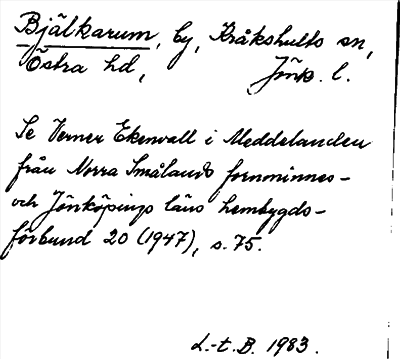 Bjälkarum, by, Kråkshults sn,
Östra hd, Jönk. l.
Se Verner Ekenvall i Meddelanden
från Norra Smålands fornminnes-
och Jönköpings läns hembygds-
förbund 20 (1947), s. 75.
L.-t. B. 1983.